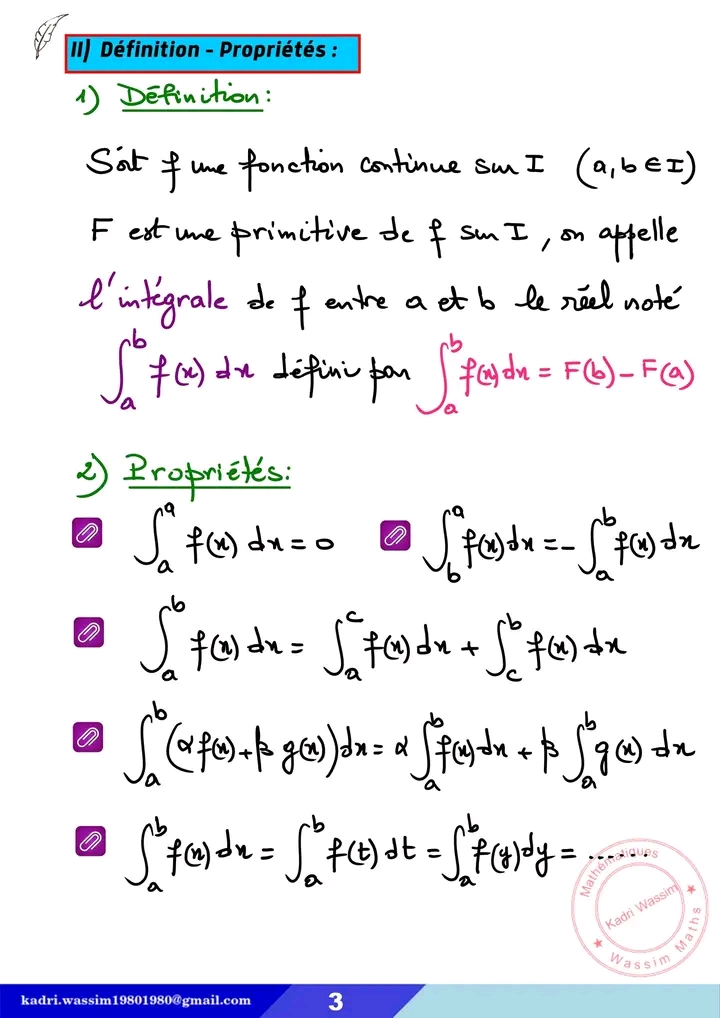 II) Définition - Propriétés :
1) Définition:
Soit f une fonction continue sur I (a, b ∈ I)
F est une primitive de f sur I, on appelle
l'intégrale de f entre a et b le réel noté
∫_a^b f(x) dx défini par ∫_a^b f(x) dx = F(b) - F(a)
2) Propriétés:
∫_a^a f(x) dx = 0 ∫_b^a f(x) dx = - ∫_a^b f(x) dx
∫_a^b f(x) dx = ∫_a^c f(x) dx + ∫_c^b f(x) dx
∫_a^b (α f(x) + β g(x)) dx = α ∫_a^b f(x) dx + β ∫_a^b g(x) dx
∫_a^b f(x) dx = ∫_a^b f(t) dt = ∫_a^b f(y) dy = .......
Mathématiques
Kadri Wassim
★ Wassim Maths ★
kadri.wassim19801980@gmail.com
3